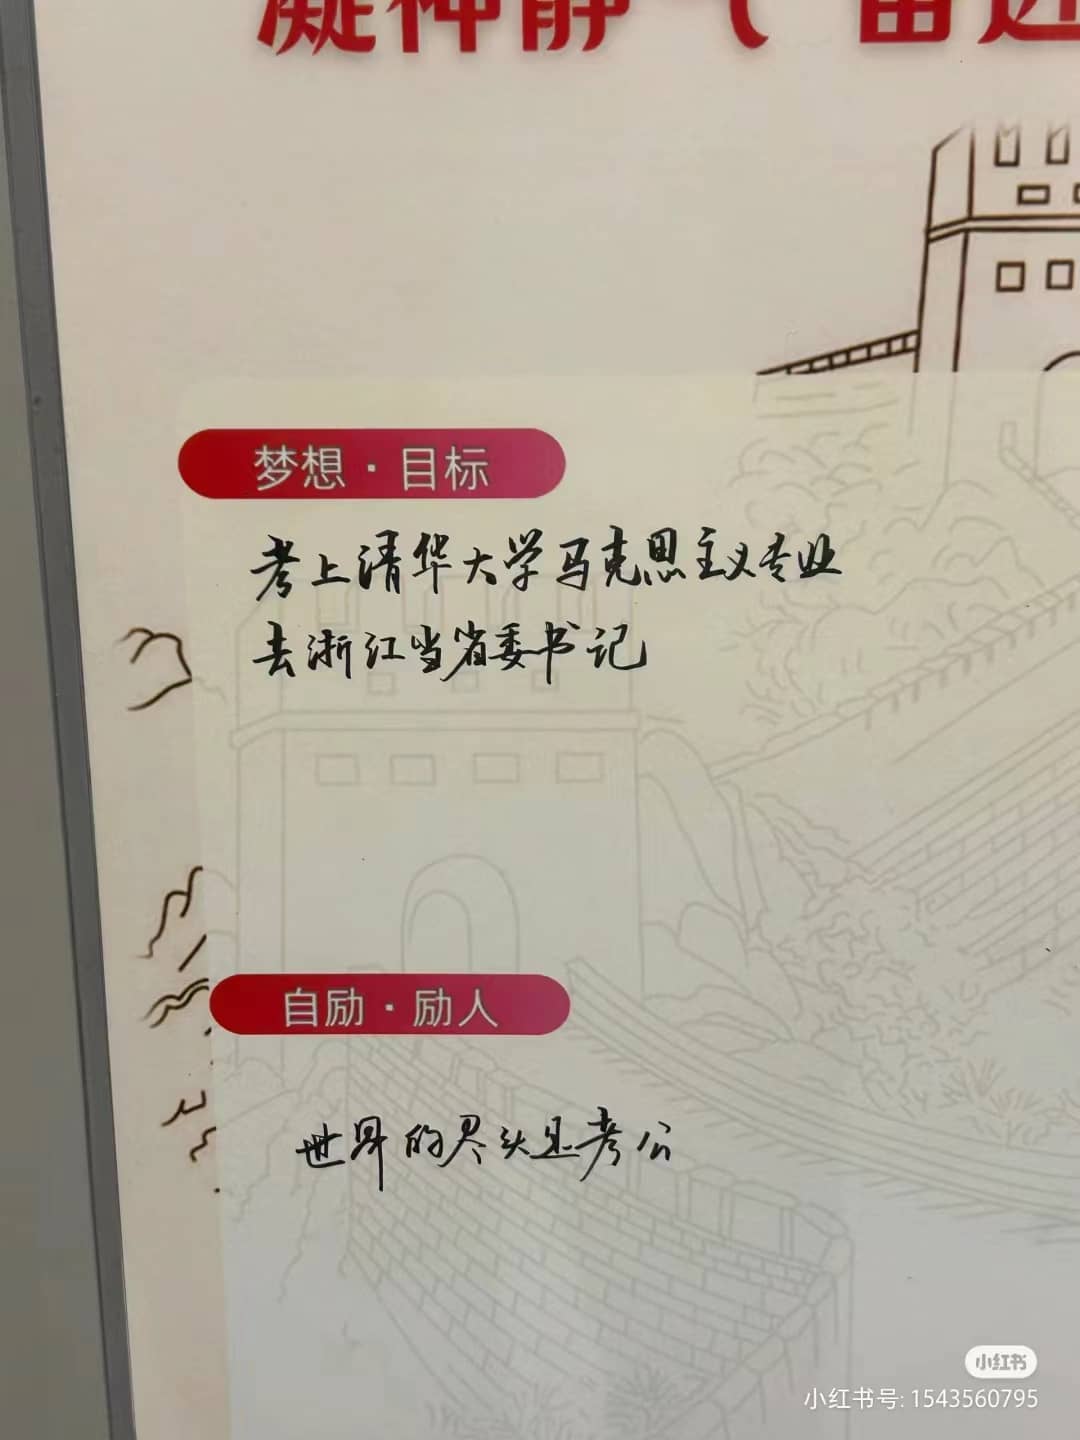 凝神静气 奋进
梦想·目标
考上清华大学马克思主义专业
去浙江当省委书记
自励·励人
世界的尽头是考公
小红书
小红书号: 1543560795